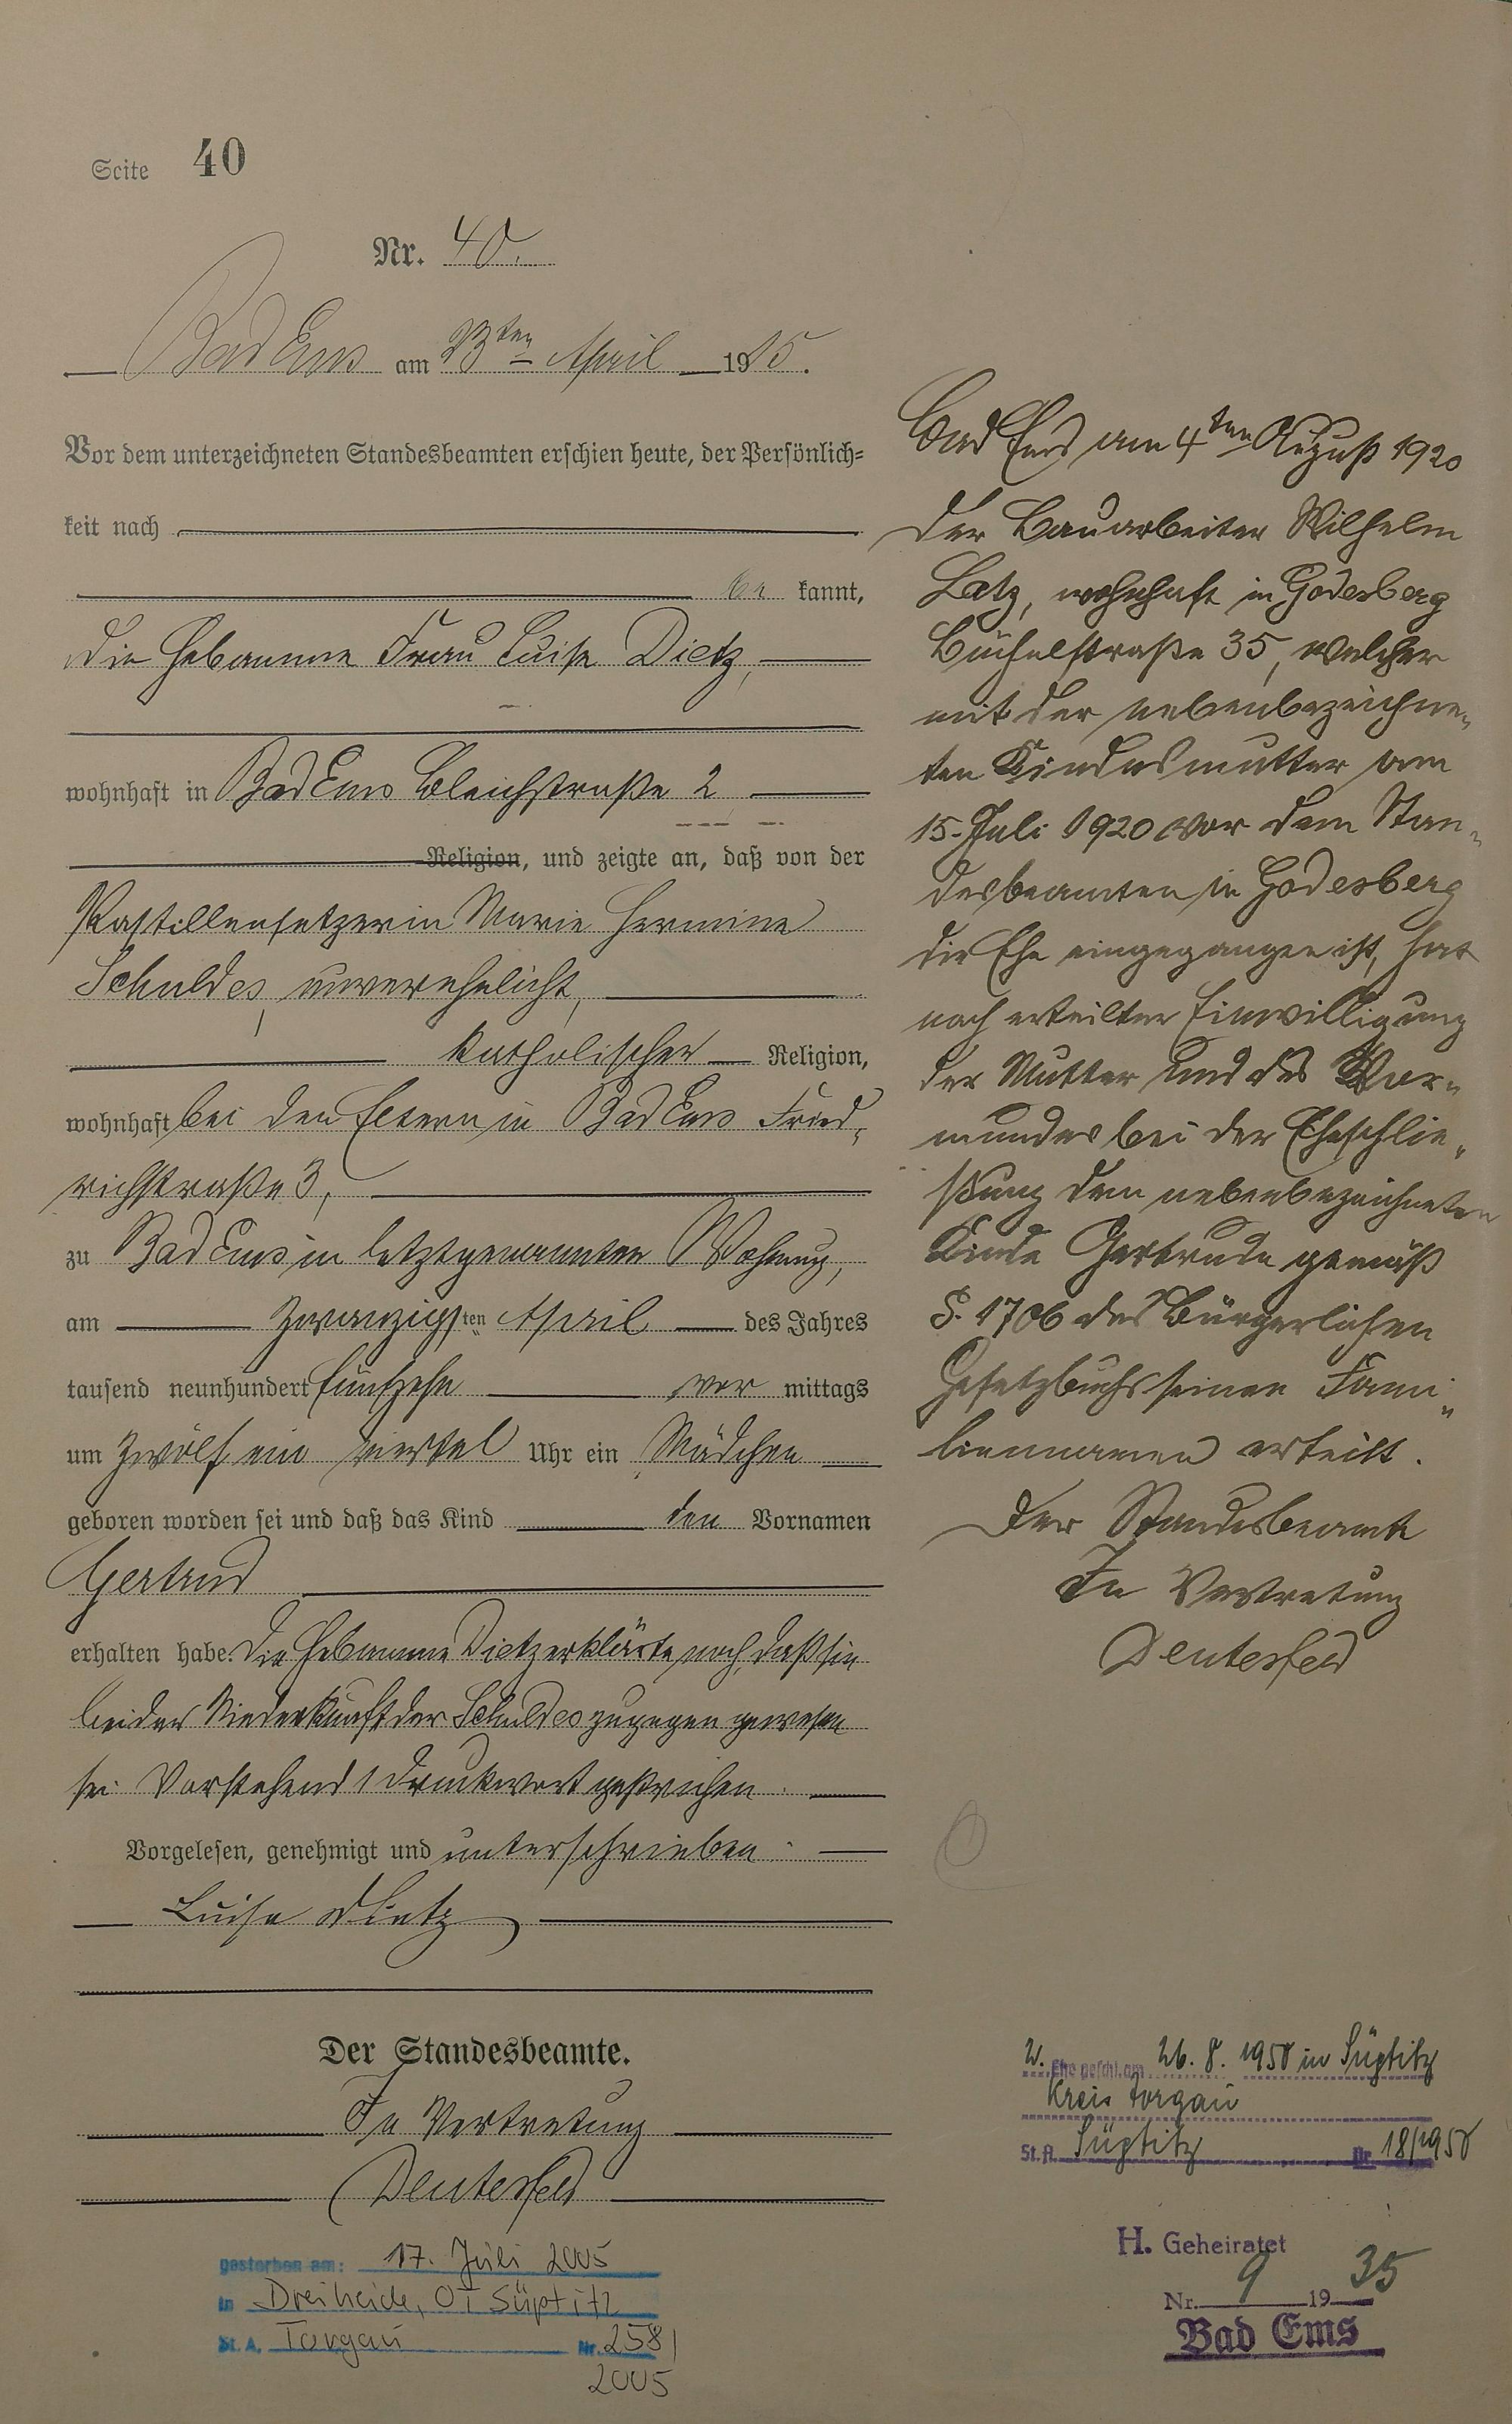 Seite 40
Nr. 40.
Bad Ems am 23ten April 1915.
Vor dem unterzeichneten Standesbeamten erschien heute, der Persönlich=
keit nach
be kannt,
die Hebamme Frau Luise Dietz,
wohnhaft in Bad Ems Bleichstraße 2
Religion, und zeigte an, daß von der
Pastillensetzerin Marie Hermine
Schuldes, unverehelicht,
katholischer Religion,
wohnhaft bei den Eltern in Bad Ems Fried„
richstraße 3,
zu Bad Ems in letztgenannter Wohnung,
am zwanzigsten April des Jahres
tausend neunhundert fünfzehn vor mittags
um zwölf ein viertel Uhr ein Mädchen
geboren worden sei und daß das Kind den Vornamen
Gertrud
erhalten habe. Die Hebamme Dietz erklärte noch, daß sie
bei der Niederkunft der Schuldes zugegen gewesen
sei. Vorstehend 1 Druckwort gestrichen.
Vorgelesen, genehmigt und unterschrieben.
Luise Dietz
Der Standesbeamte.
In Vertretung
Deutesfeld
gestorben am: 17. Juli 2005
in Dreiheide, OT Süptitz
St. A. Torgau Nr. 258/
2005
Bad Ems am 4ten August 1920
Der Bauarbeiter Wilhelm
Latz, wohnhaft in Godesberg
Büchelstraße 35, welcher
mit der nebenbezeichne„
ten Kindesmutter am
15. Juli 1920 vor dem Stan„
desbeamten in Godesberg
die Ehe eingegangen ist, hat
nach erteilter Einwilligung
der Mutter und des Vor„
mundes bei der Eheschlie„
ßung dem nebenbezeichneten
Kinde Gertrude gemäß
§. 1706 des Bürgerlichen
Gesetzbuchs seinen Fami„
liennamen erteilt.
Der Standesbeamte
In Vertretung
Deutesfeld
2. Ehe geschl. am 26. 8. 1950 in Süptitz
Kreis Torgau
St. A. Süptitz Nr. 18/1950
H. Geheiratet
Nr. 9 1935
Bad Ems